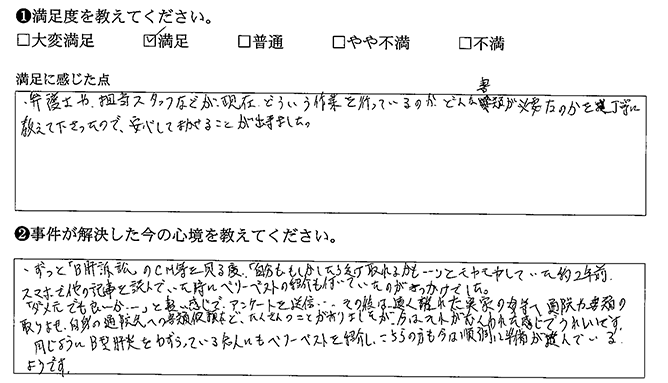 ❶満足度を教えてください。
□大変満足 ☑満足 □普通 □やや不満 □不満
満足に感じた点
・弁護士や、担当スタッフなどが、現在、どういう作業を行っているのか、どんな書類が必要なのかを丁寧に
教えて下さったので、安心してまかせることが出来ました。
❷事件が解決した今の心境を教えてください。
・ずっと「B肝訴訟」のCM等を見る度、「自分ももしかしたら受け取れるかも…」ともやもやしていた約2年前。
スマホで他の記事を読んでいた時にベリーベストの紹介も付いていたのがきっかけでした。
「ダメ元でも良いか…」と軽い感じで、アンケートを送信… その後は、遠く離れた実家の母子手帳、通院や書類の
取りよせ、自身の通院先への書類依頼など、たくさんのことがありましたが、今はそれがむくわれた感じでうれしいです。
同じようにB型肝炎をわずらっている友人にもベリーベストを紹介し、こちらの方も今は順調に準備が進んでいる
ようです。